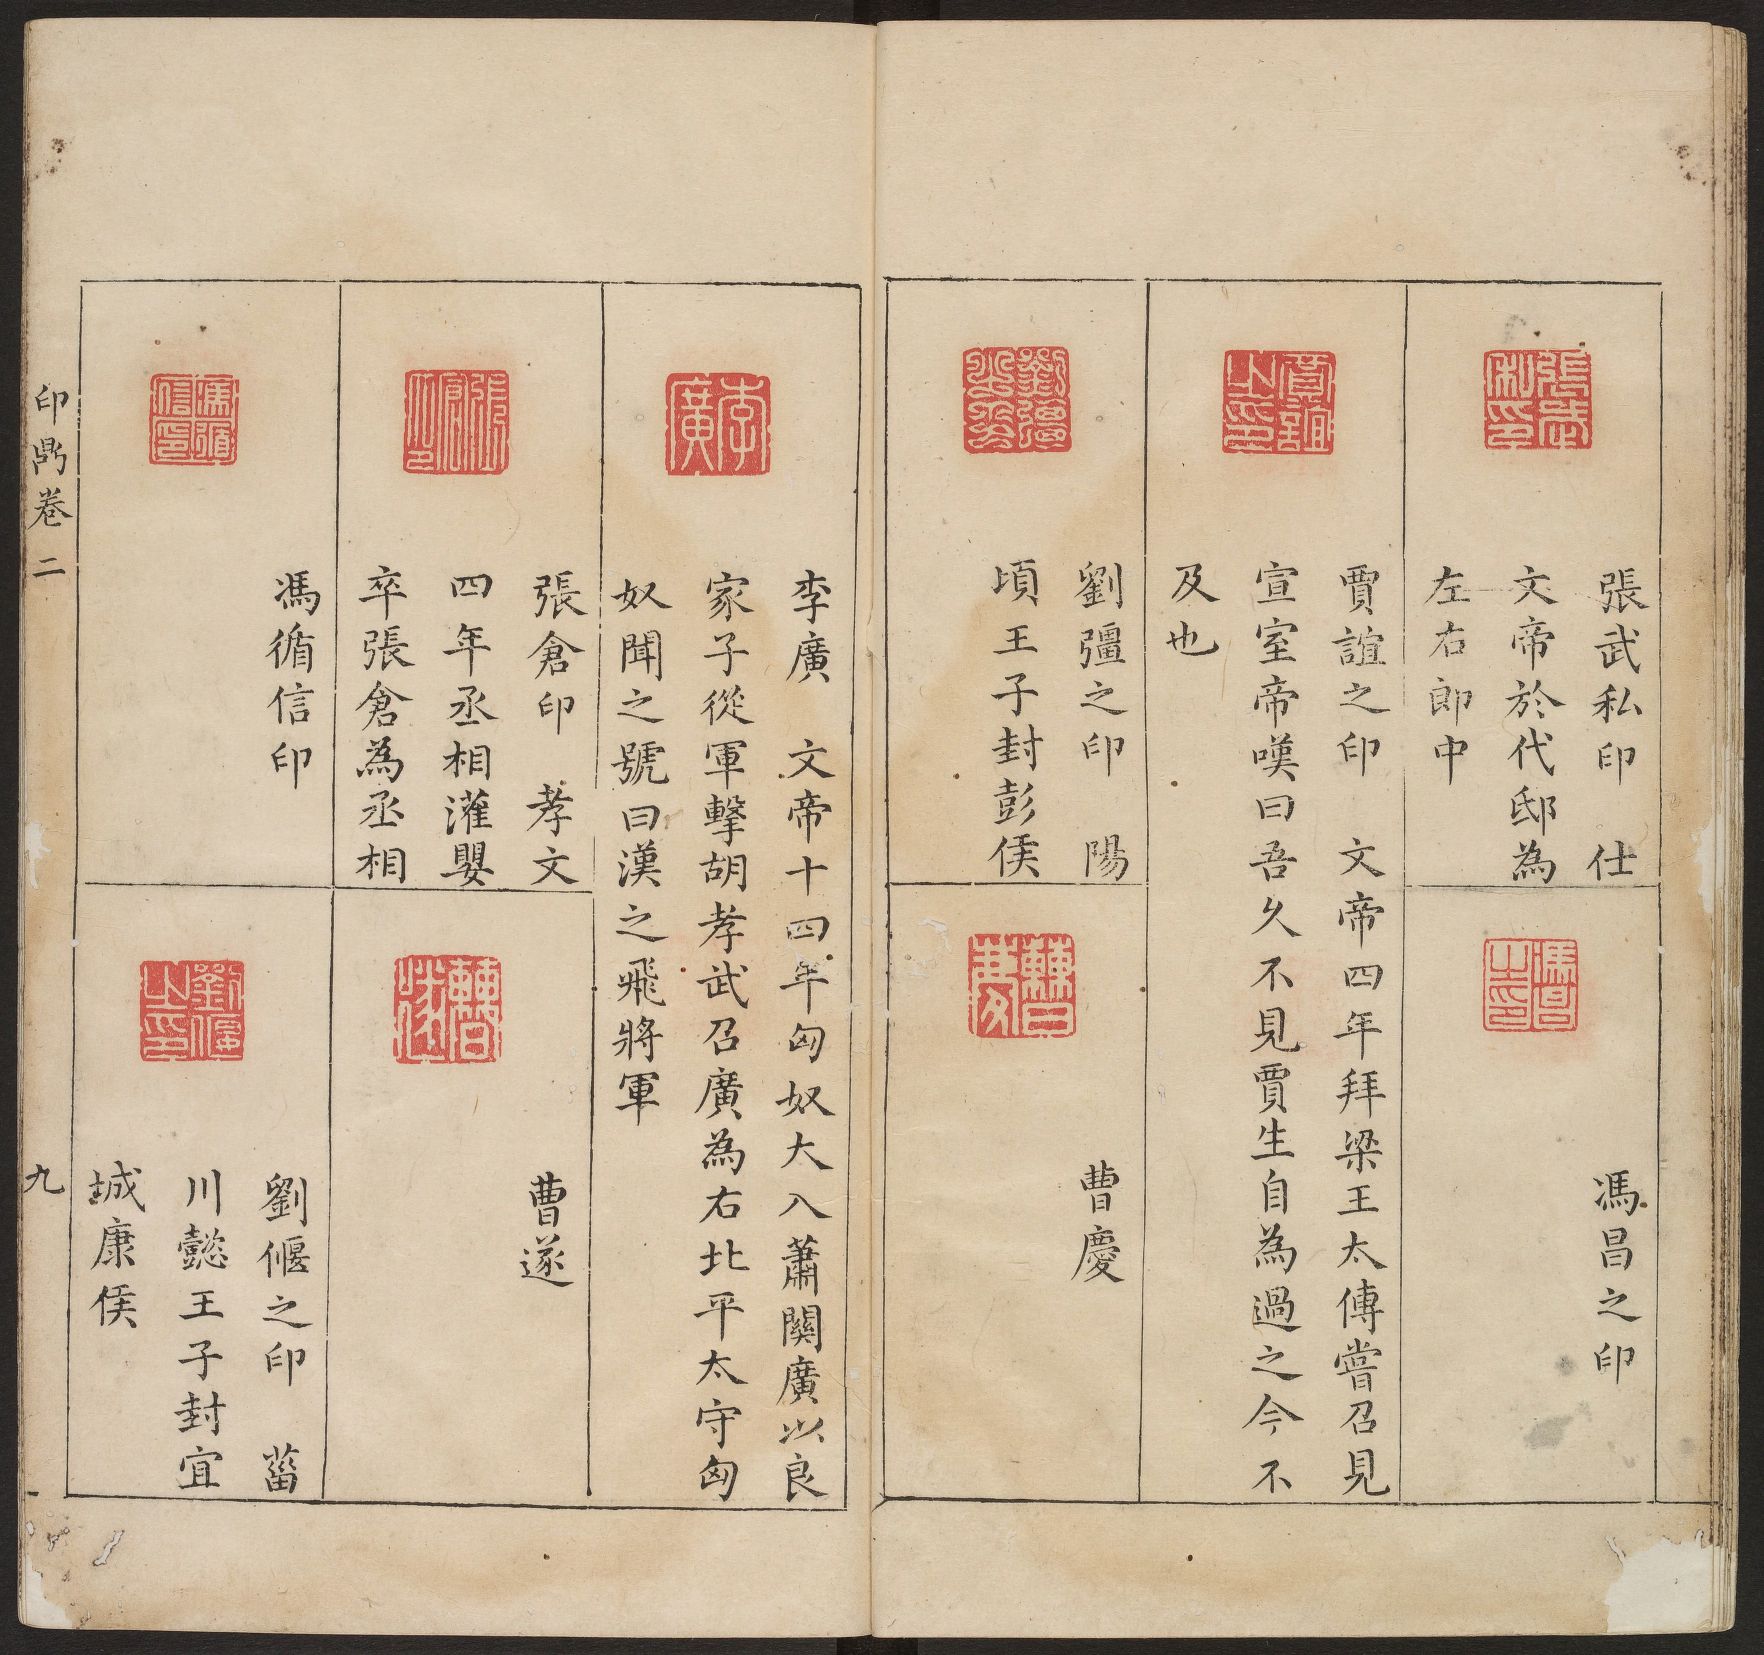 張武私印　仕
文帝於代邸為
左右郎中
馮昌之印
賈誼之印　文帝四年拜梁王太傅嘗召見
宣室帝嘆曰吾久不見賈生自為過之今不
及也
劉彊之印　陽
頃王子封彭侯
曹慶
李廣　文帝十四年匈奴大入蕭關廣以良
家子從軍擊胡孝武召廣為右北平太守匈
奴聞之號曰漢之飛將軍
張倉印　孝文
四年丞相灌嬰
卒張倉為丞相
曹遂
馮循信印
劉偃之印　菑
川懿王子封宜
城康侯
印鼎卷二
九
張武私印
馮昌之印
賈誼之印
李廣
張倉印
馮循信印
劉偃之印